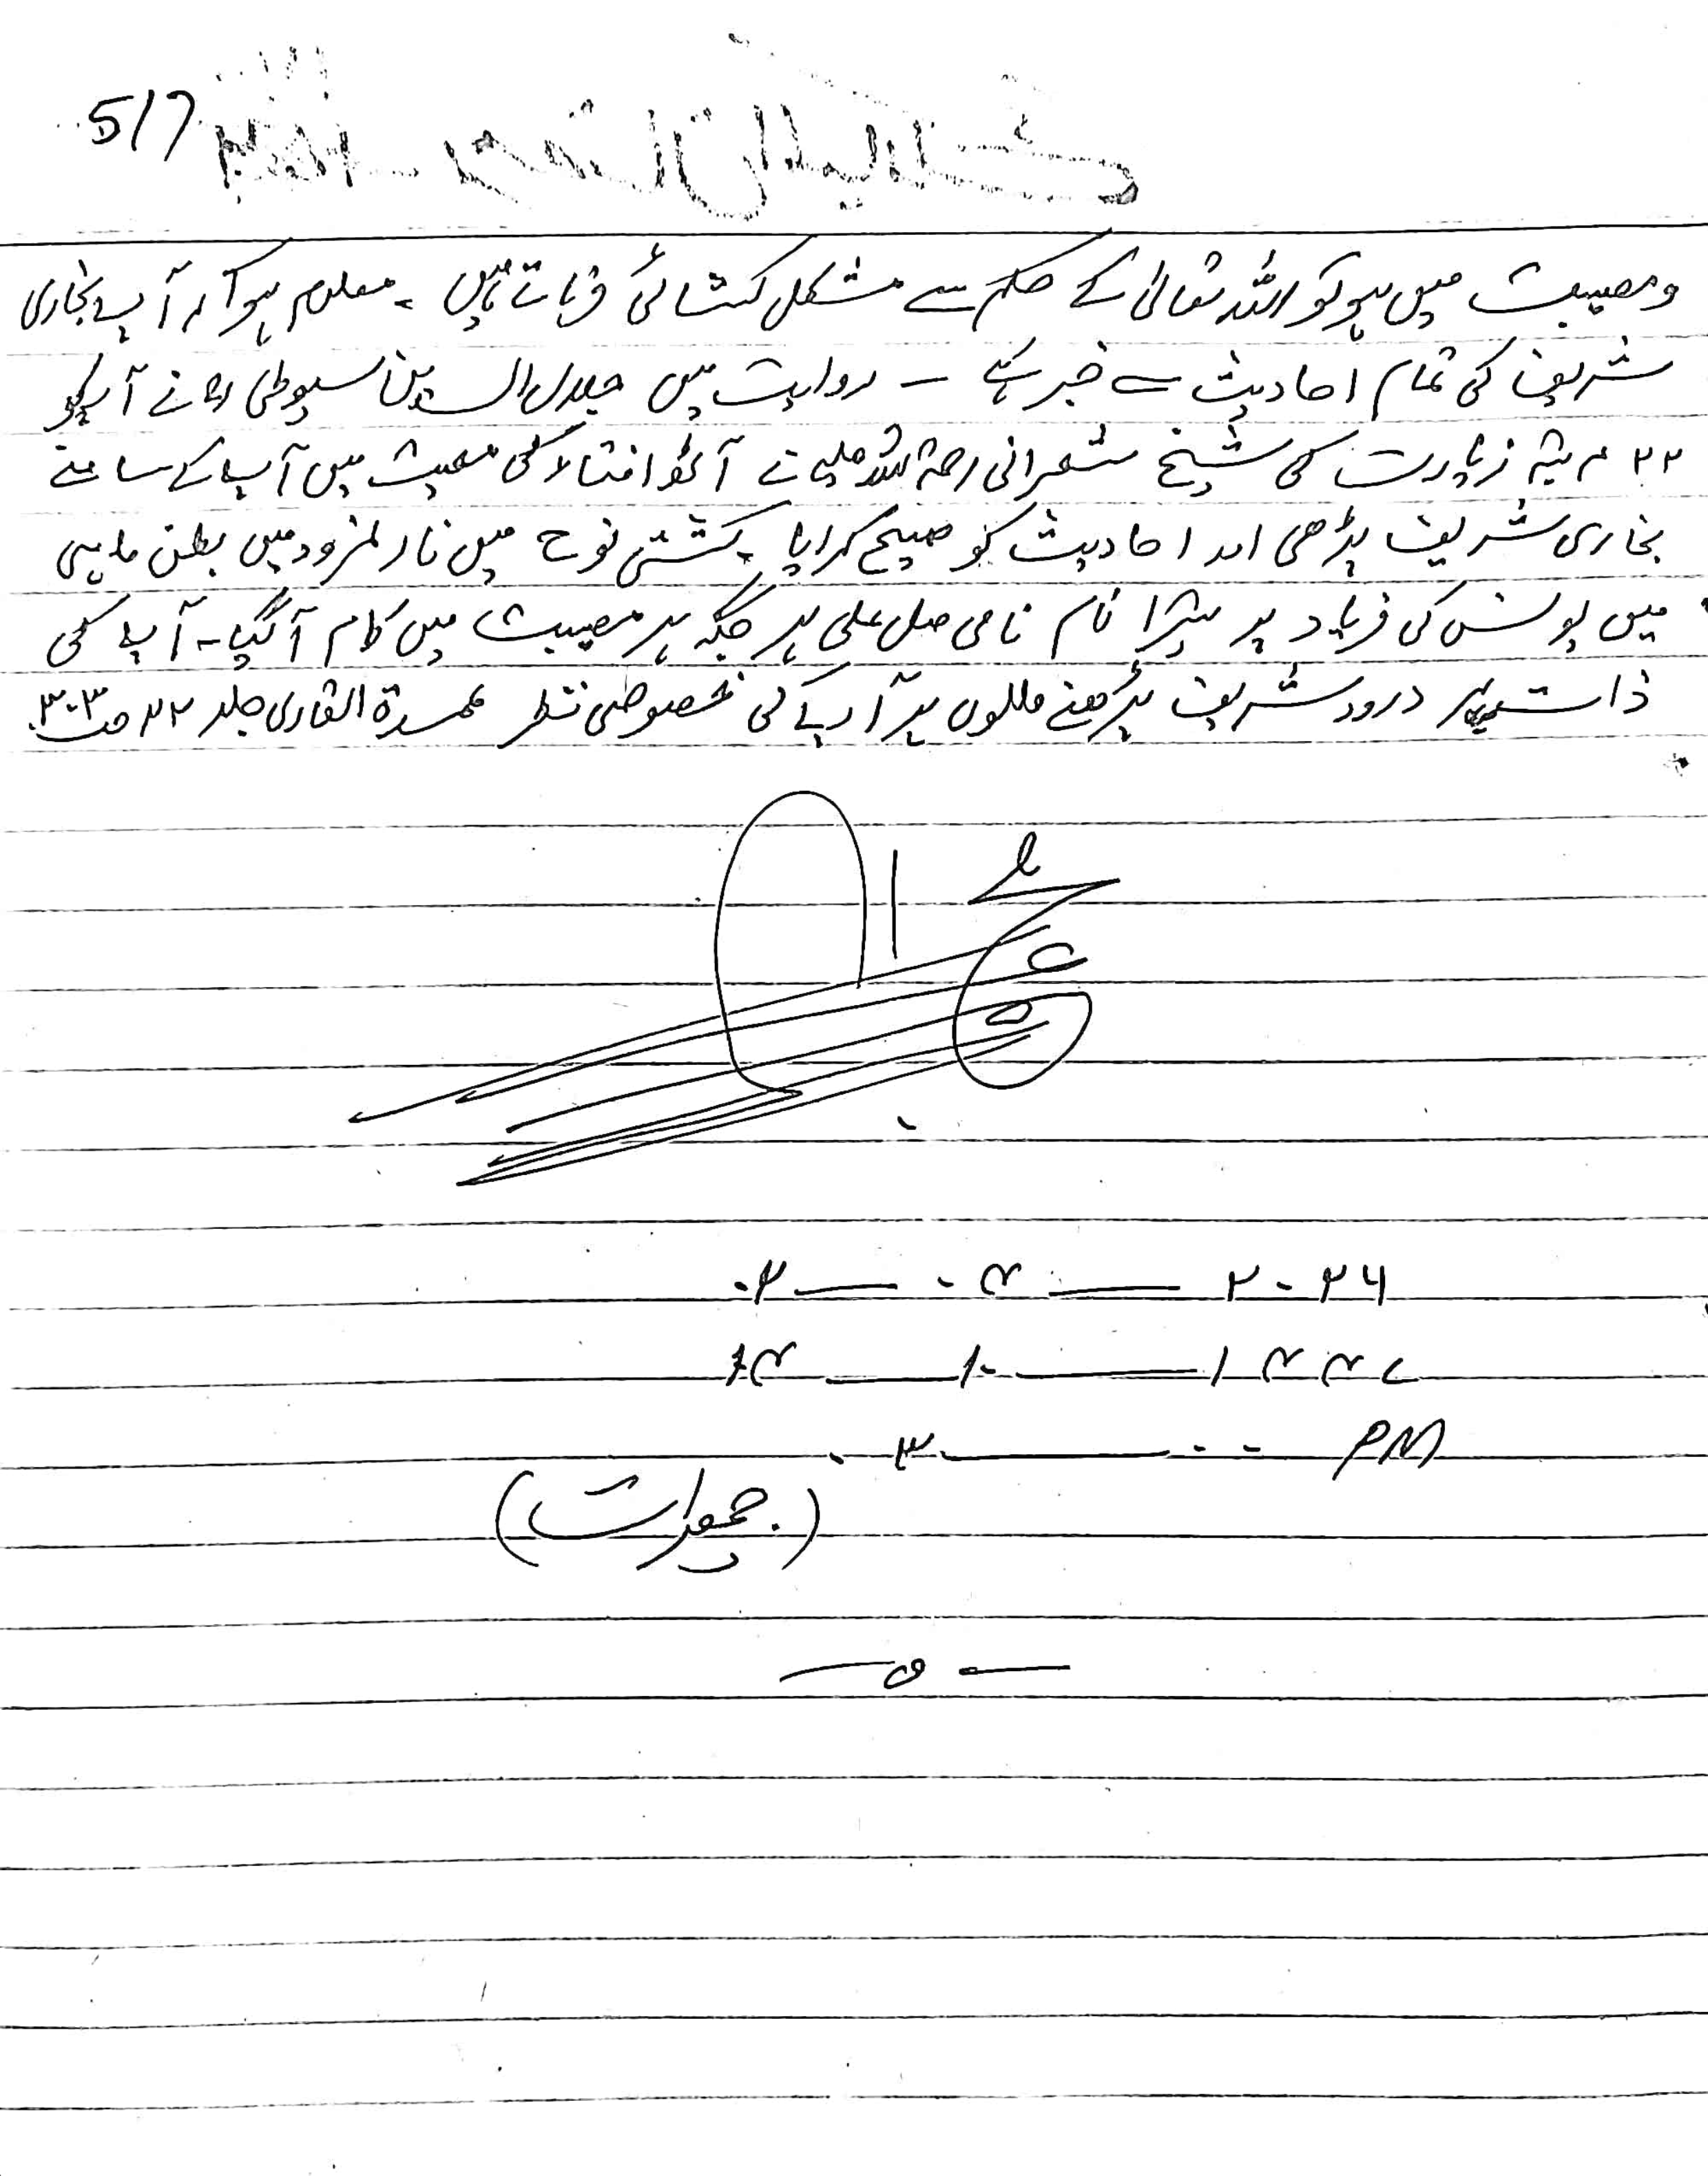 517
و مصیبت میں ہو تو اللہ تعالیٰ کے حکم سے مشکل کشائی فرماتے ہیں ۔ معلوم ہوا کہ آپ بخاری
شریف کی تمام احادیث سے خبر ہے – روایت میں جلال الدین سیوطی رح نے آپکو
۲۲ مرتبہ زیارت کی شیخ شعرانی رحمۃ اللہ علیہ نے آٹھ افتاد کی معیت میں آپ کے سامنے
بخاری شریف پڑھی اور احادیث کو صحیح کرایا ۔ کشتی نوح میں نار نمرود میں بطن ماہی
میں یونس کی فریاد پر تیرا نام نامی صل علی ہر جگہ ہر مصیبت میں کام آگیا ۔ آپ کی
ذات پر درود شریف پڑھنے والوں پر آپ کی خصوصی نظر عمدۃ القاری جلد ۲۲ ص ۳۰۳
۰۲ — ۰۴ — ۲۰۲۶
۱۴ — ۱۰ — ۱۴۴۷
۰۳ — ۰۰ PM
(جمعرات)